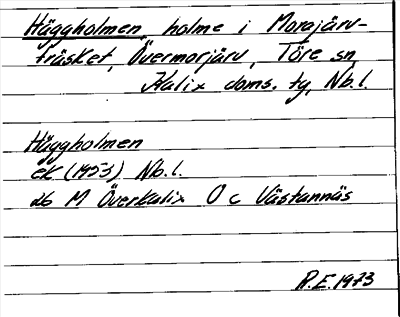 Häggholmen, holme i Morajärv-
träsket, Övermorjärv, Töre sn,
Kalix doms. tg, Nb.l.
Häggholmen
ek (1953) Nb.l.
db M Överkalix O c Västannäs
R.E. 1973